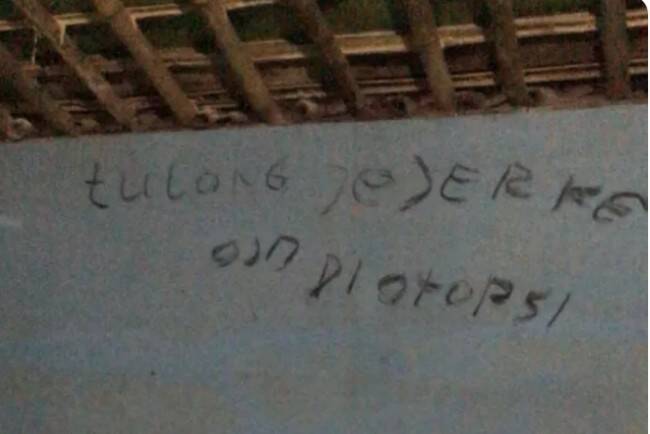 tULONG JEJER KE
DIOTOPSI